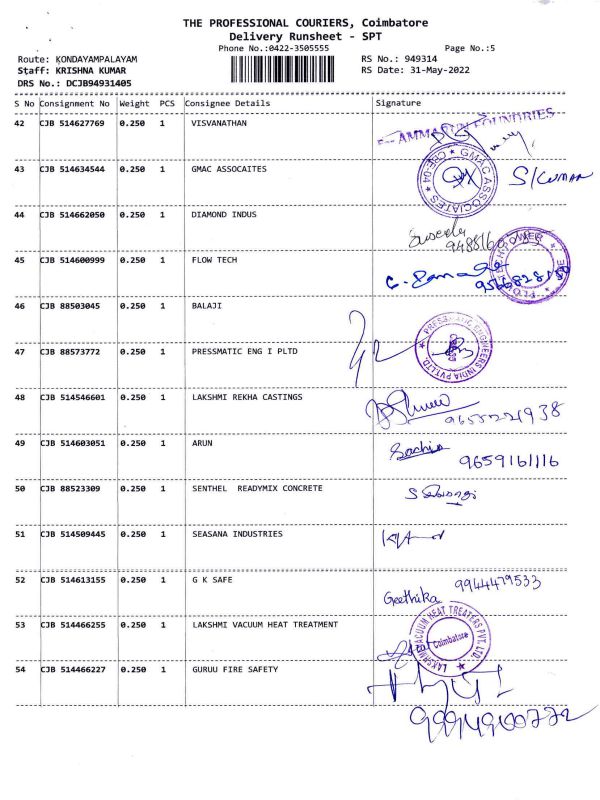 THE PROFESSIONAL COURIERS, Coimbatore
Delivery Runsheet - SPT
Phone No.:0422-3505555 Page No.:5
Route: KONDAYAMPALAYAM RS No.: 949314
Staff: KRISHNA KUMAR RS Date: 31-May-2022
DRS No.: DCJB94931405
S No Consignment No Weight PCS Consignee Details Signature
42 CJB 514627769 0.250 1 VISVANATHAN
43 CJB 514634544 0.250 1 GMAC ASSOCAITES
GMAC ASSOCIATES ★ CBE-04 ★
S/KUMAR
44 CJB 514662050 0.250 1 DIAMOND INDUS
45 CJB 514600999 0.250 1 FLOW TECH
46 CJB 88503045 0.250 1 BALAJI
47 CJB 88573772 0.250 1 PRESSMATIC ENG I PLTD
PRESSMATIC ENGINEERS INDIA PVT.LTD. ★
48 CJB 514546601 0.250 1 LAKSHMI REKHA CASTINGS
9655221938
49 CJB 514603051 0.250 1 ARUN
Sachin
9659161116
50 CJB 88523309 0.250 1 SENTHEL READYMIX CONCRETE
51 CJB 514509445 0.250 1 SEASANA INDUSTRIES
52 CJB 514613155 0.250 1 G K SAFE
9944479533
Geethika
53 CJB 514466255 0.250 1 LAKSHMI VACUUM HEAT TREATMENT
LAKSHMI VACUUM HEAT TREATERS PVT. LTD. ★
Coimbatore
54 CJB 514466227 0.250 1 GURUU FIRE SAFETY